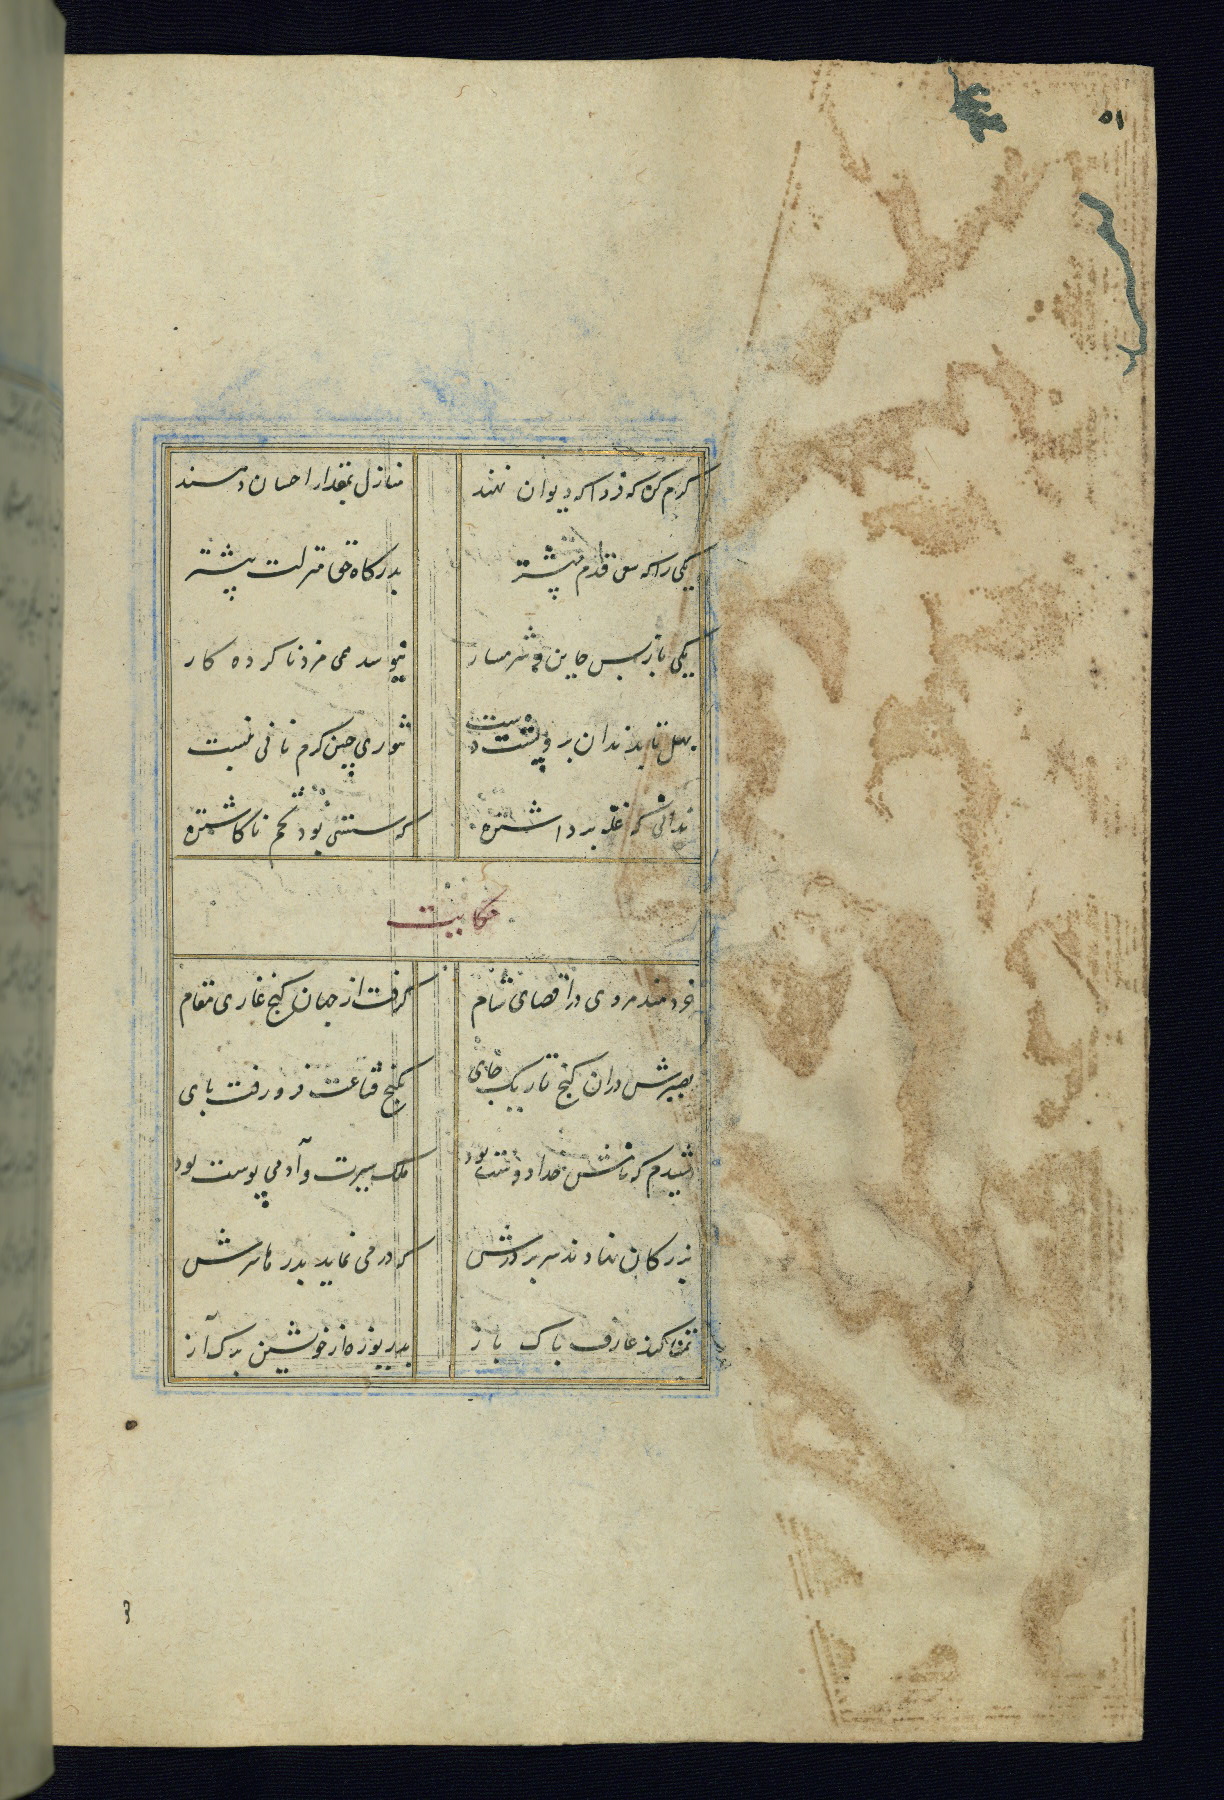 ۵۱
کرم کن که فردا که دیوان نهند منازل بمقدار احسان دهند
یکی را که سعی قدم پیشتر بدرگاه حق منزلت بیشتر
یکی باز پس خاین و شرمسار نیو سد همی مزد ناکرده کار
بهل تا بدندان برد پشت دست تنوری چنین گرم نانی نبست
بدانی که غله برداشتن که سستی بود تخم ناکاشتن
حکایت
خردمند مردی در اقصای شام گرفت از جهان کنج غاری مقام
بصبرش دران کنج تاریک جای بکنج قناعت فرو رفت پای
شنیدم که نامش خدادوست بود ملک سیرت و آدمی پوست بود
بزرگان نهادند سر بر درش که در می نماید بدر ها سرش
تمنا کند عارف پاک باز بدریوزه از خویشتن ترک آز